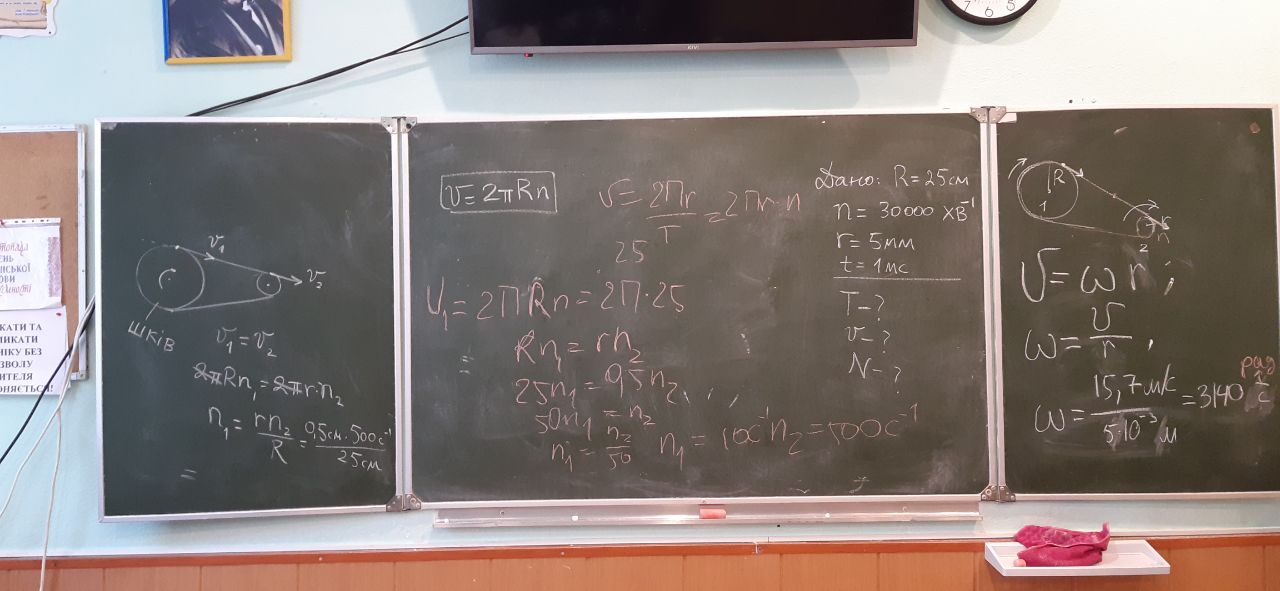 КАТИ ТА
МИКАТИ
НІКУ БЕЗ
ЗВОЛУ
ИТЕЛЯ
ОНЯЄТЬСЯ!
v₁
v₂
шків
v₁ = v₂
2πRn₁ = 2πr·n₂
n₁ = rn₂/R = 0,5см·500с⁻¹/25см
=
KIVI
7 6 5
v = 2πRn
v = 2Пr/T = 2Пr·n
25
U₁ = 2ПRn = 2П·25
=
Rn₁ = rn₂
25n₁ = 0,5n₂
50n₁ = n₂
n₁ = n₂/50
n₁ = 10c⁻¹ n₂ = 500c⁻¹
Дано: R = 25см
n = 30000 хв⁻¹
r = 5мм
t = 1мс
T = ?
v = ?
N = ?
R
1
2
v = ω r ;
ω = v/r ,
ω = 15,7 м/с / 5·10⁻³ м = 3140 рад/с